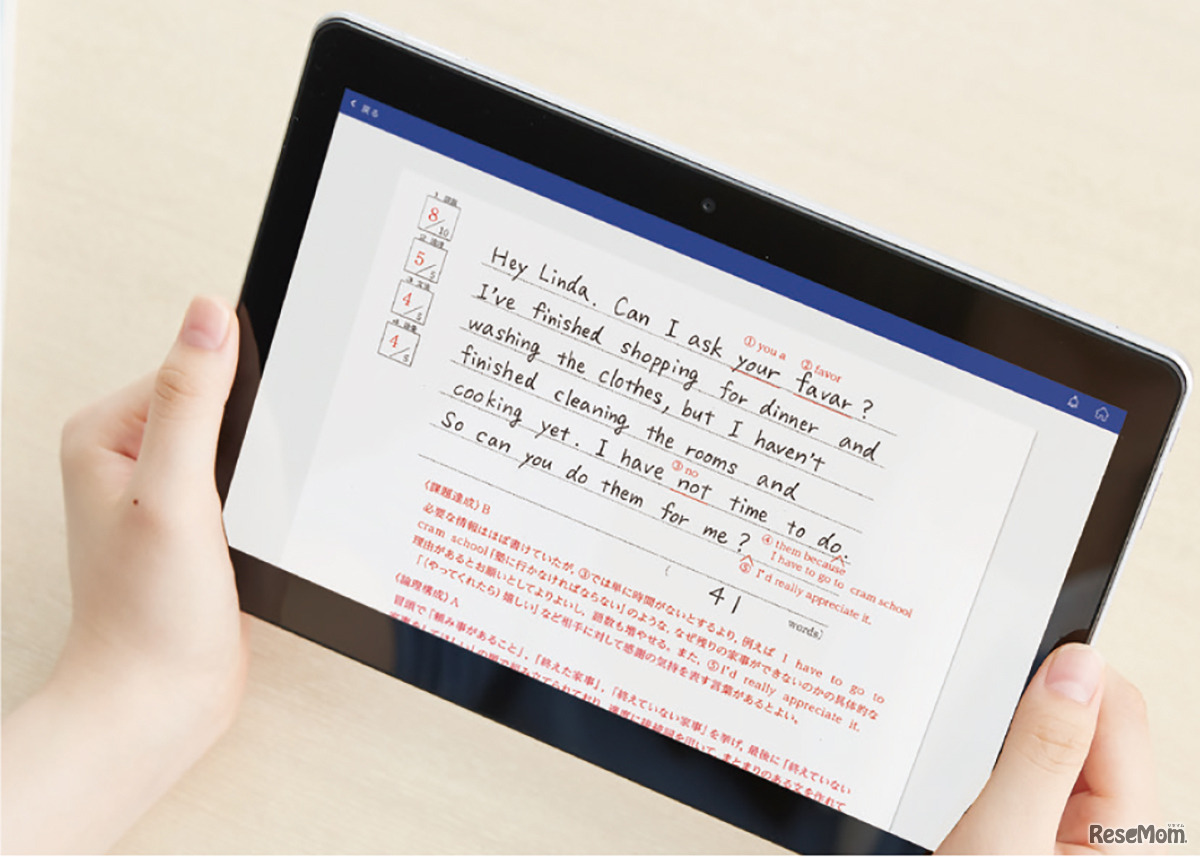 戻る
8/10
5/5
4/5
4/5
① you a ② favor
Hey Linda. Can I ask your favar?
I've finished shopping for dinner and
washing the clothes, but I haven't
finished cleaning the rooms and
cooking yet. I have not time to do.
③ no
So can you do them for me?
④ them because
I have to go to cram school
⑤ I'd really appreciate it.
41 words〕
〈課題達成〉B
必要な情報はほぼ書けていたが,③では単に時間がないとするより,例えば I have to go to
cram school「塾に行かなければならない」のような,なぜ残りの家事ができないのかの具体的な
理由があるとお願いとしてよりよいし,語数も増やせる。また,⑤ I'd really appreciate it.
「(やってくれたら)嬉しい」など相手に対して感謝の気持を表す言葉があるとよい。
〈論理構成〉A
冒頭で「頼み事があること」,「終えた家事」,「終えていない家事」を挙げ,最後に「終えていない
まとまりのある文を作れて
ReseMom